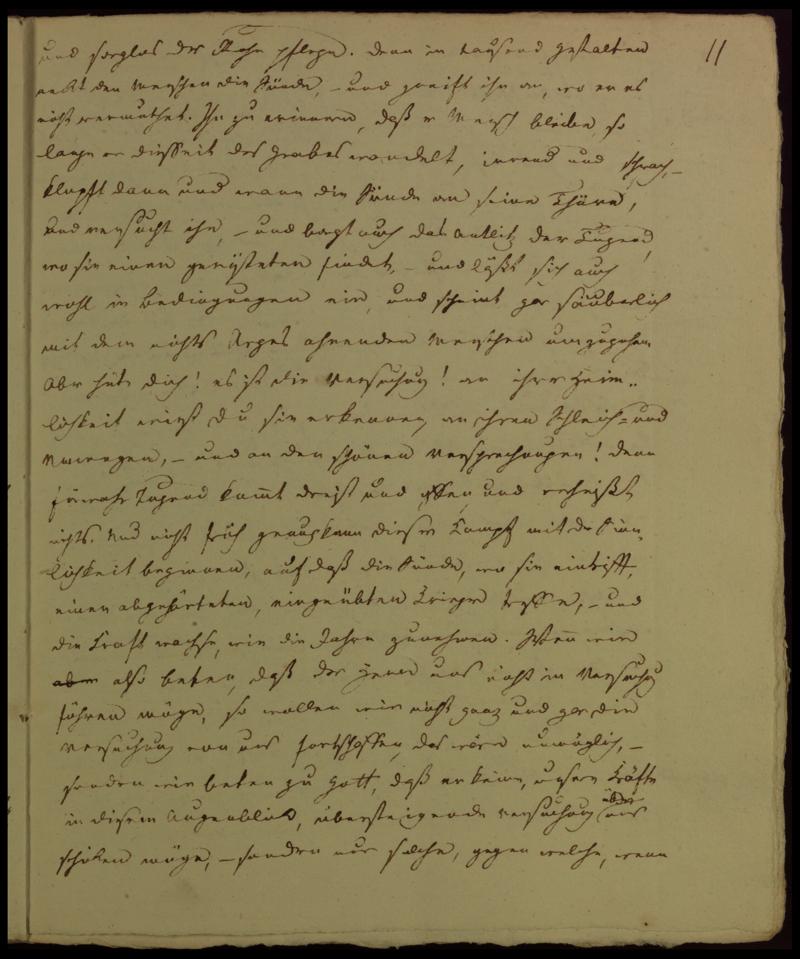 11
und sorglos der Ruhe pflegen. Denn in tausend Gestalten
neckt den Menschen die Sünde, – und greift ihn an, wo er es
nicht vermuthet. Ihn zu erinnern, daß er Mensch bleibe, so
lange er diesseit des Grabes wandelt, irrend und schwach, –
klopft dann und wann die Sünde an seine Thüre,
und versucht ihn, – und borgt auch das Antlitz der Tugend,
wo sie einen gerüsteten findet, – und läßt sich auch
wohl in Bedingungen ein, und scheint gar säuberlich
mit dem nichts Arges ahnenden Menschen umzugehen.
Aber hüte dich! es ist die Versuchung! an ihrer Heim-
lichkeit wirst du sie erkennen, an ihren Schleich- und
Umwegen, – und an den schönen Versprechungen! denn
fürwahr Tugend kommt dreist und offen, und verheißt
nichts. Und nicht früh genug kann dieser Kampf mit der Sinn-
lichkeit beginnen, auf daß die Sünde, wo sie eintrifft,
einen abgehärteten, eingeübten Krieger treffe, – und
die Kraft wachse, wie die Jahre zunehmen. Wenn wir
aber also beten, daß der Herr uns nicht in Versuchung
führen möge, so wollen wir nicht ganz und gar die
Versuchung von uns fortschaffen, das wäre unmöglich, –
sondern wir beten zu Gott, daß er keine, unsere Kräfte
in diesem Augenblick, übersteigende Versuchung über uns
schicken möge, – sondern nur solche, gegen welche, wenn